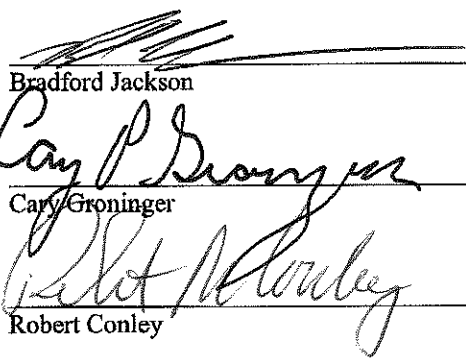 Bradford Jackson
Cary P Groninger
Cary Groninger
Robert M Conley
Robert Conley